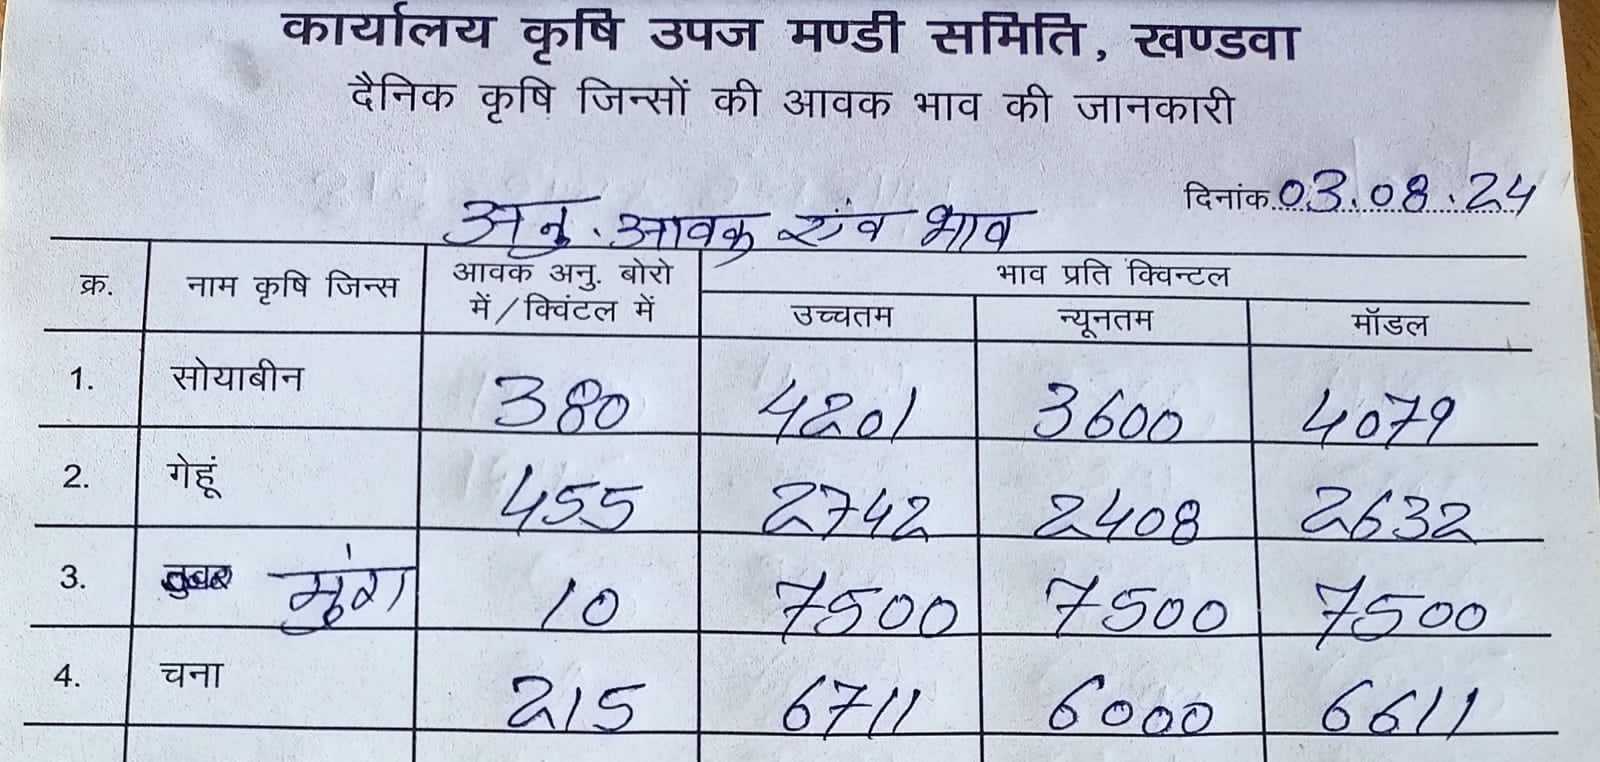 कार्यालय कृषि उपज मण्डी समिति, खण्डवा
दैनिक कृषि जिन्सों की आवक भाव की जानकारी
दिनांक 03.08.24
अनु. आवक एंव भाव
क्र. नाम कृषि जिन्स आवक अनु. बोरो में/क्विंटल में भाव प्रति क्विन्टल
उच्चतम न्यूनतम मॉडल
1. सोयाबीन 380 4201 3600 4079
2. गेहूं 455 2742 2408 2632
3. मुंग 10 7500 7500 7500
4. चना 215 6711 6000 6611